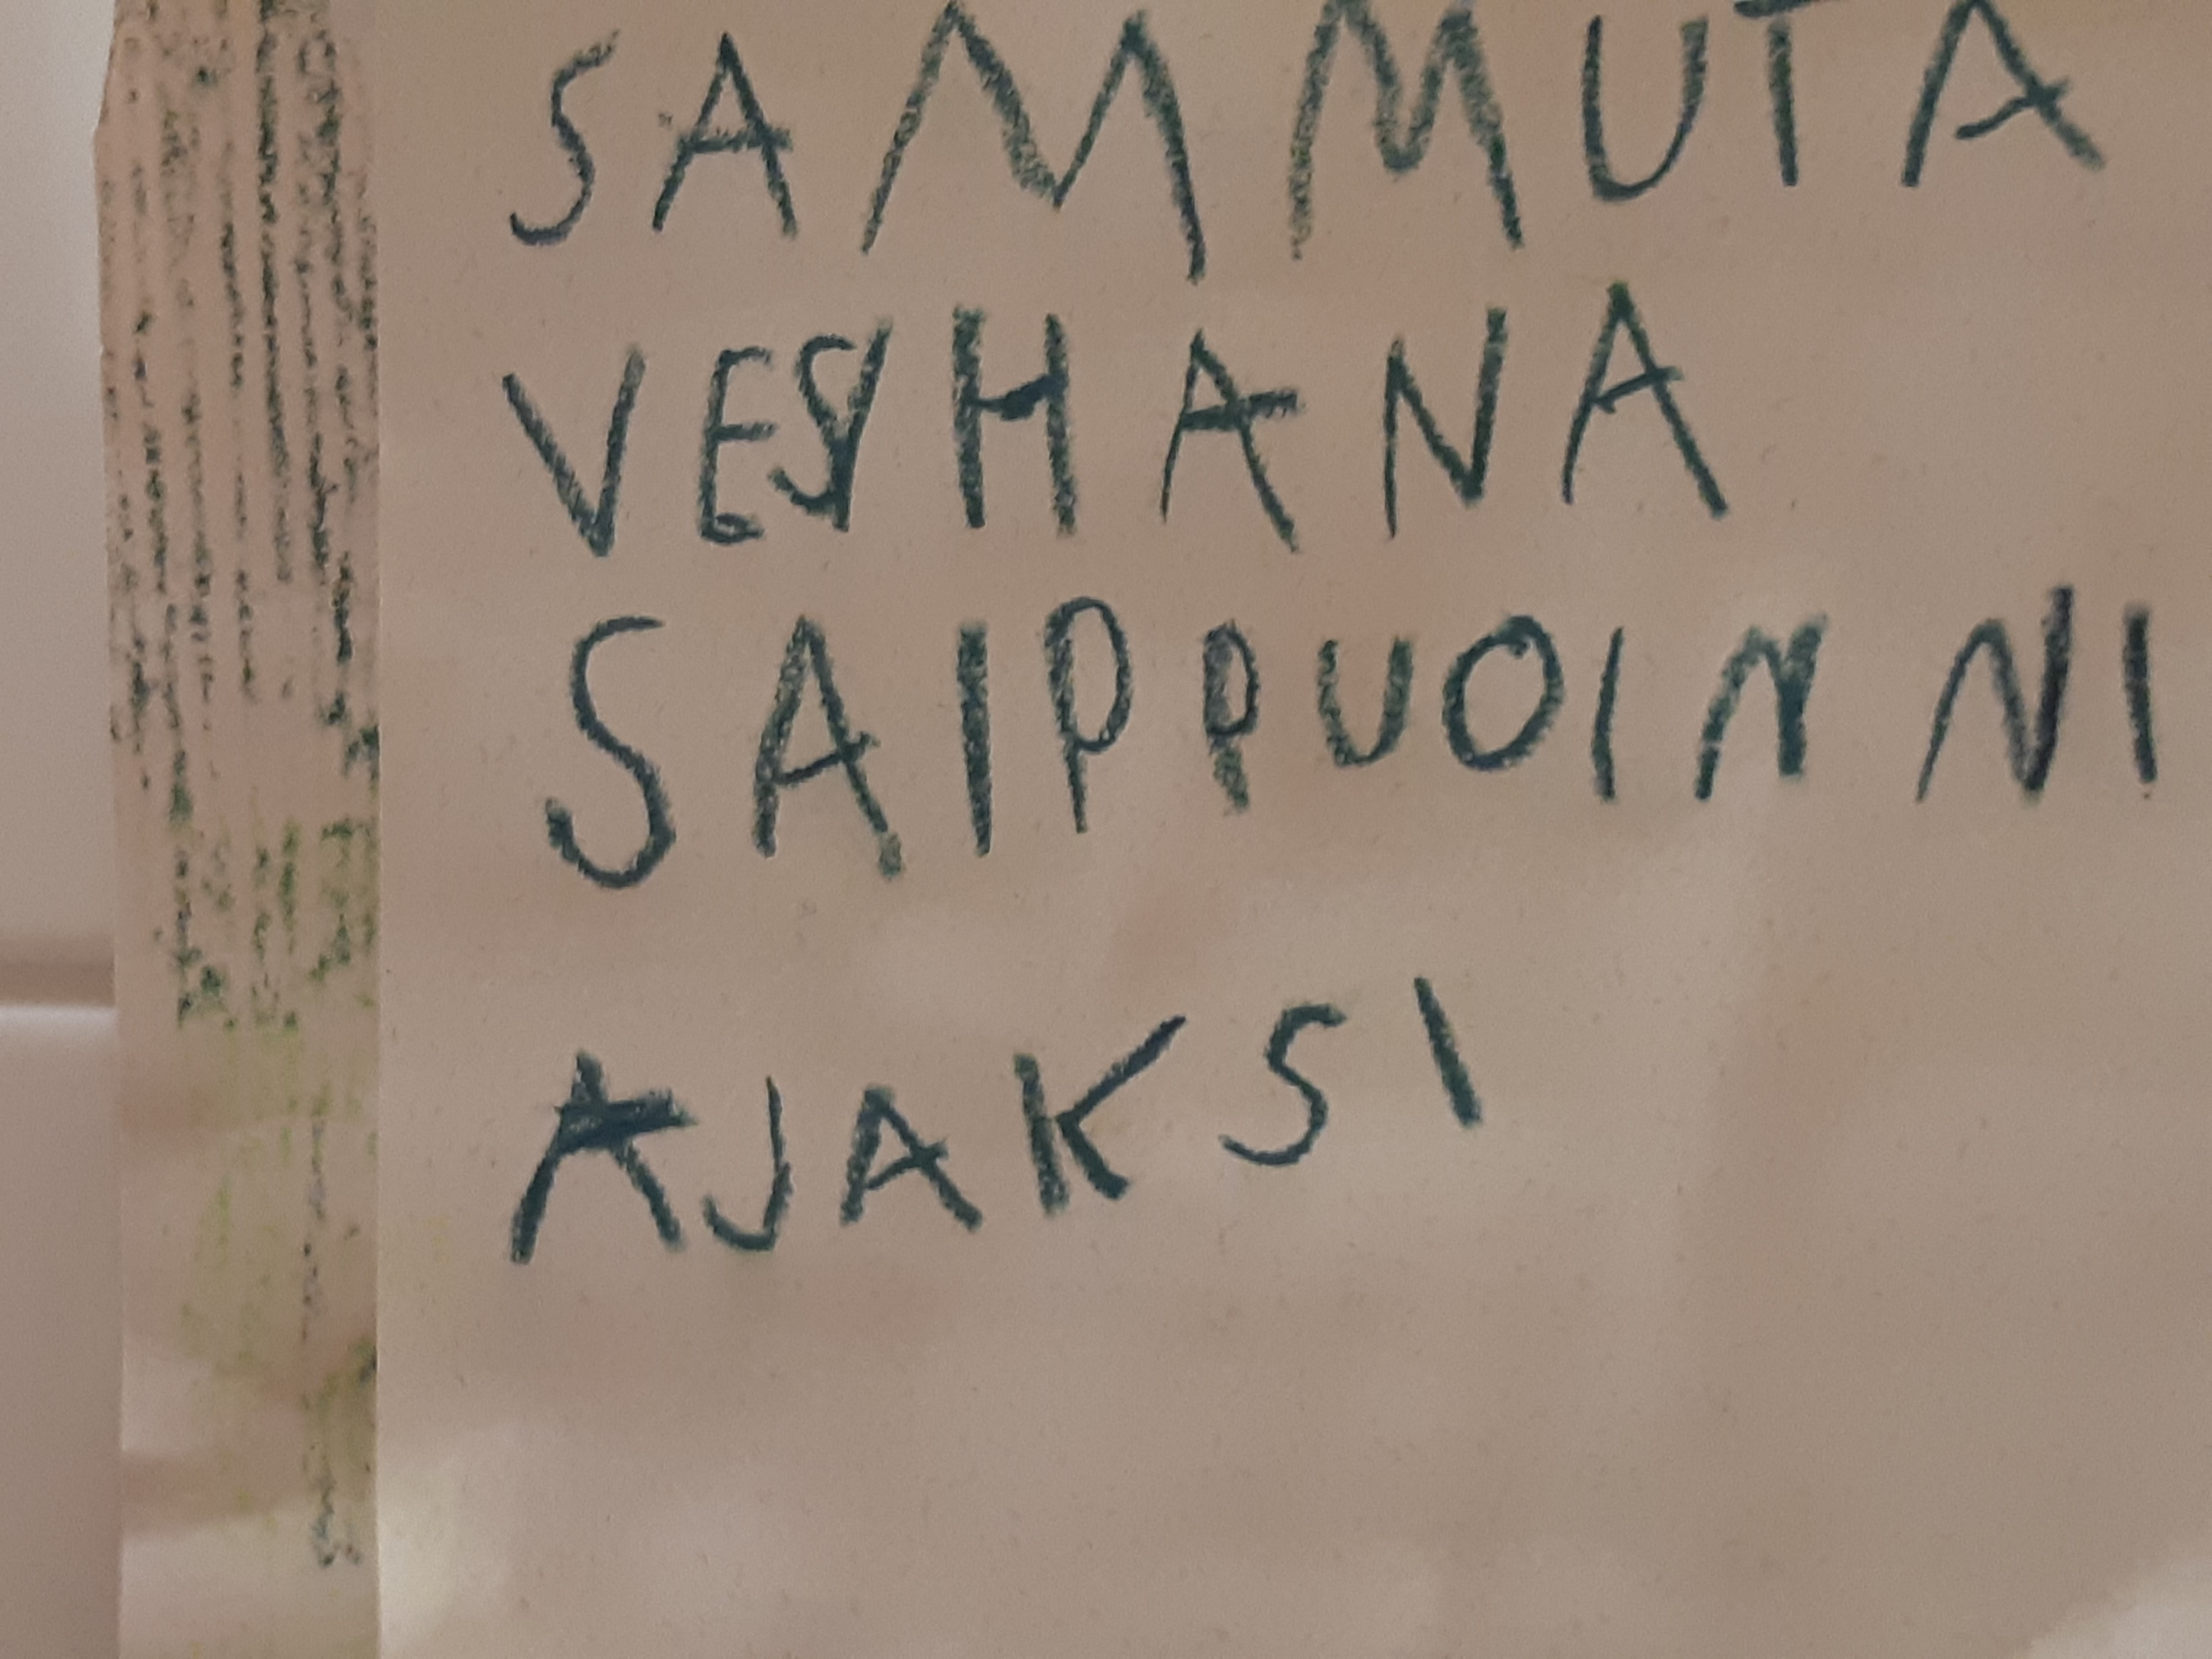 SAMMUTA
VESIHANA
SAIPPUOINNI
AJAKSI